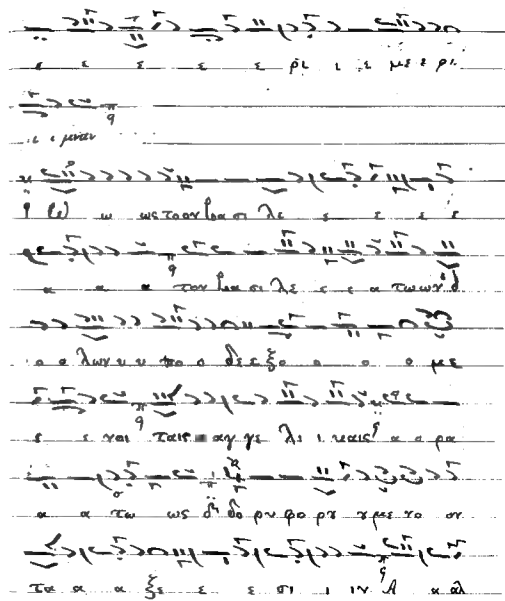 ε ε ε ε ε ρι ι ε με ε ρι
ι ι μναν
ω ως τον βα σι λε ε ε ε ε
α α α τον βα σι λε ε ε α τω ων
ο ο λων υ υ πο ο δε ε ξο ο ο ο με
ε ε νοι ταις αγ γε λι ι καις α ο ρα
α α τω ως δο ρυ φο ρȣ ȣ με νο ον
τα α α ξε ε ε σι ι ιν Α α αλ